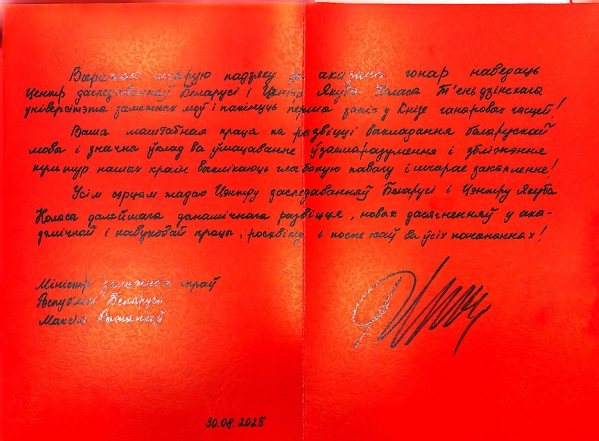 Выражаю шчырую падзяку за аказаны гонар наведаць
Цэнтр даследаванняў Беларусі і Цэнтр Якуба Коласа Ц'еньдзінскага
універсітэта замежных моў і пакінуць першы запіс у Кнізе ганаровых гасцей!
Ваша маштабная праца па развіцці выкладання беларускай
мовы і значны ўклад ва ўмацаванне ўзаемаразумення і збліжэнне
культур нашых краін выклікаюць глыбокую павагу і шчырае захапленне!
Усім сэрцам жадаю Цэнтру даследаванняў Беларусі і Цэнтру Якуба
Коласа далейшага дынамічнага развіцця, новых дасягненняў у ака-
дэмічнай і навуковай працы, росквіту і поспехаў ва ўсіх пачынаннях!
Міністр замежных спраў
Рэспублікі Беларусь
Максім Рыжанкоў
30.08.2025